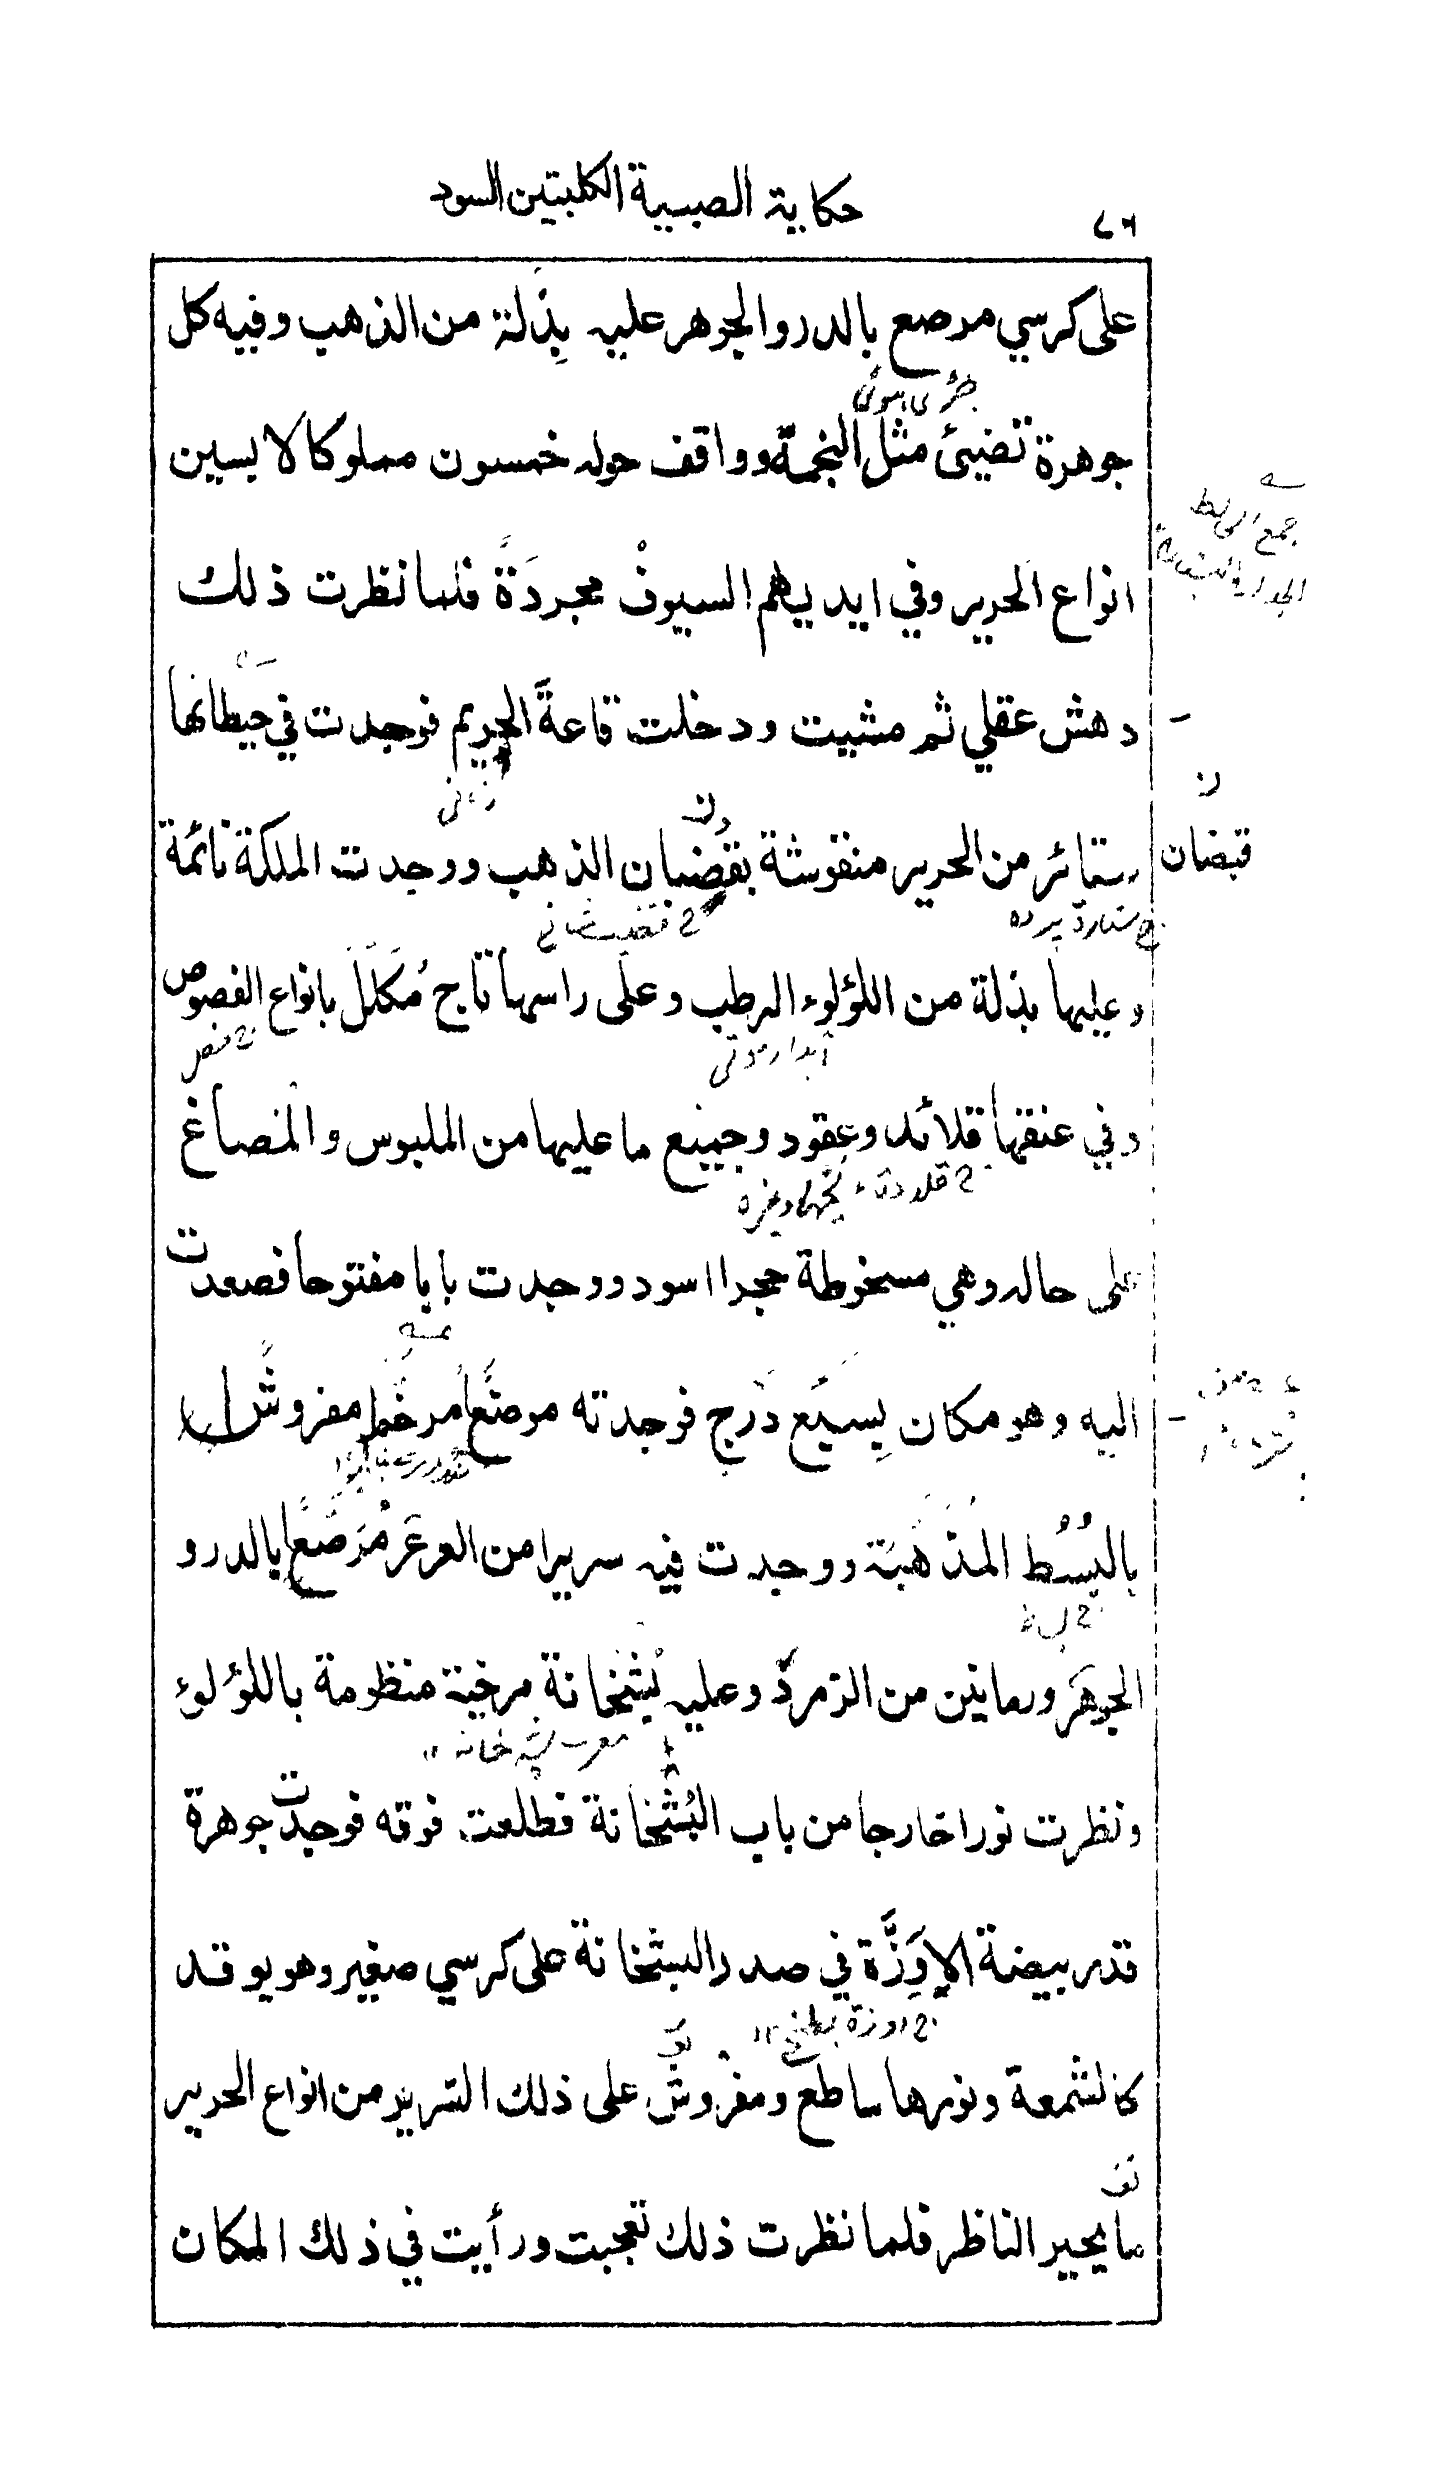 حكاية الصبية الكلبتين السود
على كرسي مرصع بالدر والجوهر عليه بِذلة من الذهب وفيه كل
جوهرة تضيئ مثل النجمة وواقف حوله خمسون مملوكا لابسين
انواع الحرير وفي ايديهم السيوفُ مجردَةً فلما نظرت ذلك
دهش عقلي ثم مشيت ودخلت قاعةَ الحريم فوجدت في حيطانها
ستائر من الحرير منقوشة بقضبان الذهب ووجدت الملكة نائمة
قبضان
ج ستارة پرده
وعليها بذلة من اللؤلوء الرطب وعلى راسها تاج مُكَلَّل بانواع الفصوص
آبدار موتي
وفي عنقها قلائد وعقود وجميع ما عليها من الملبوس والمصاغ
على حاله وهي مسخوطة حجرا اسود ووجدت بابا مفتوحا فصعدت
اليه وهو مكان بِسَبَع دَرج فوجدته موضعًا مرخما مفروشًا
بالبُسُط المذَهَّبة ووجدت فيه سريرا من العرعَر مُرَصَّعا بالدر و
الجوهَر ورمانتين من الزمرد وعليه بُشخانة مرخية منظومة باللؤلوء
معرب پشه خانه ١١
ونظرت نورا خارجا من باب البُشخانة فطلعت فوقه فوجدت جوهرة
قدر بيضة الإوَزَّة في صدر البشخانة على كرسي صغير وهو يوقد
كالشمعة ونورها ساطع ومفروش على ذلك السرير من انواع الحرير
ما يحير الناظر فلما نظرت ذلك تعجبت ورأيت في ذلك المكان